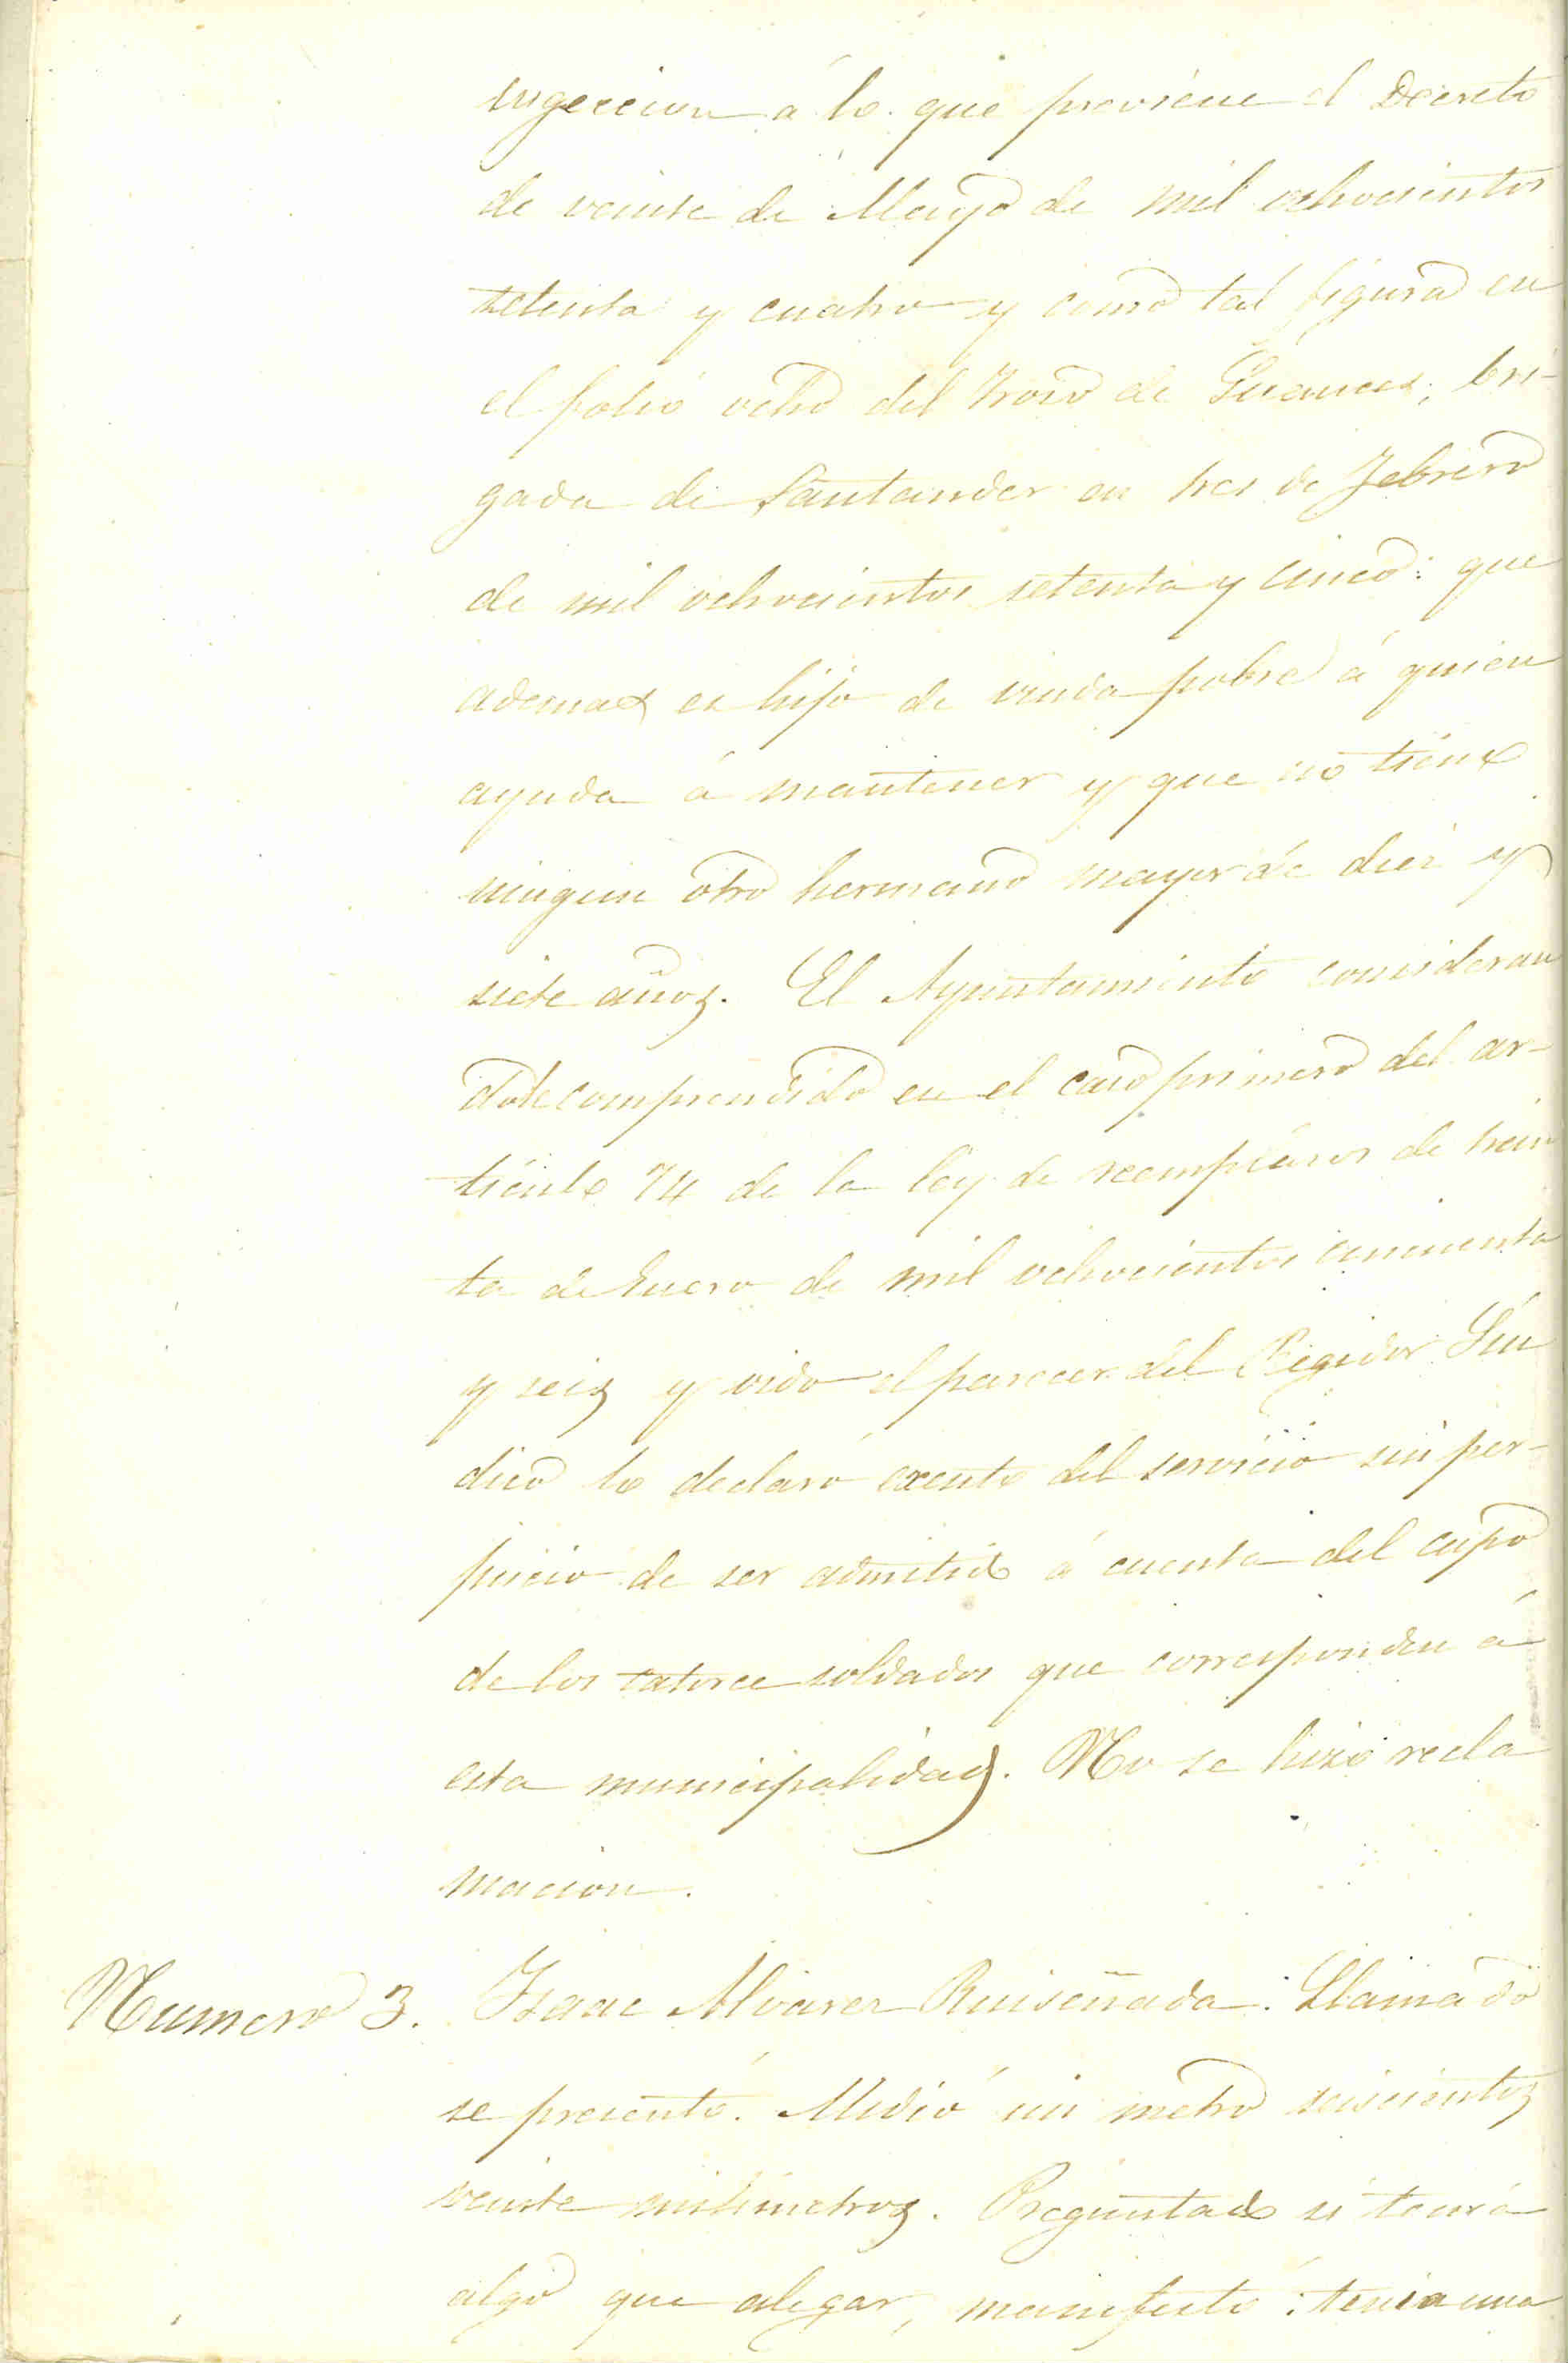 sugeccion á lo que previene el Decreto
de veinte de Mayo de mil ochocientos
setenta y cuatro y como tal figura en
el folio ocho del trozo de Suances, bri-
gada de Santander en tres de Febrero
de mil ochocientos setenta y cinco: que
ademas es hijo de viuda pobre á quien
ayuda á mantener y que no tiene
ningun otro hermano mayor de diez y
siete años. El Ayuntamiento consideran
dole comprendido en el caso primero del ar-
tículo 74 de la ley de reemplazos de trein
ta de Enero de mil ochocientos cincuenta
y seis y oido el parecer del Regidor Sín
dico le declaró exento del servicio sin per-
juicio de ser admitido á cuenta del cupo
de los catorce soldados que corresponden á
esta municipalidad. No se hizo recla
macion.
Numero 3. Isaac Alvarez Ruiseñada. Llamado
se presentó. Midió un metro seiscientos
veinte milimetros. Preguntado si tenia
algo que alegar, manifestó: tenia una